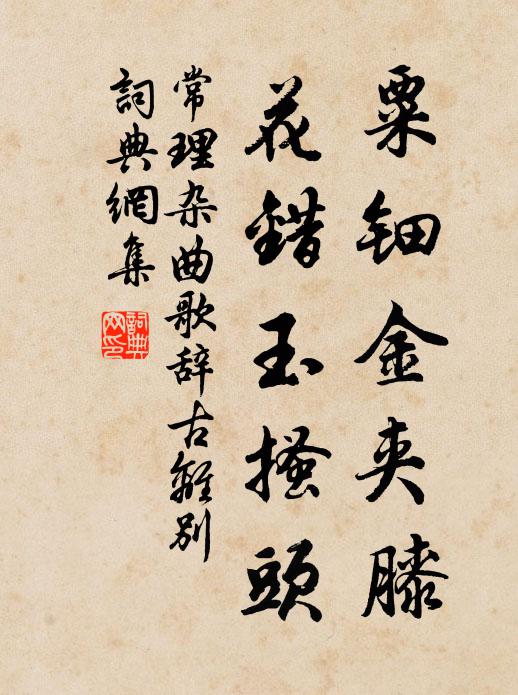 粟钿金夹膝
花錯玉搔頭
常理杂曲歌辞古離别
詞典網集
詞典网印